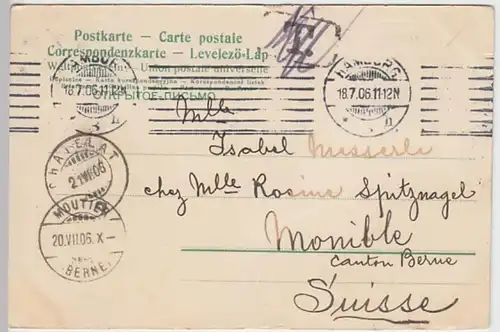 Postkarte — Carte postale
Correspondenzkarte — Levelező-Lap
Union postale universelle
ОТКРЫТОЕ ПИСЬМО
T
HAMBURG
18.7.06.11-12N
HAMBURG
18.7.06.11-12N
Mlle
Isabel Messerli
chez Mlle Rosine Spitznagel
Monible
Canton Berne
Suisse
CHATELAT
21.VII.06
MOUTIER
20.VII.06.X-
(BERNE)